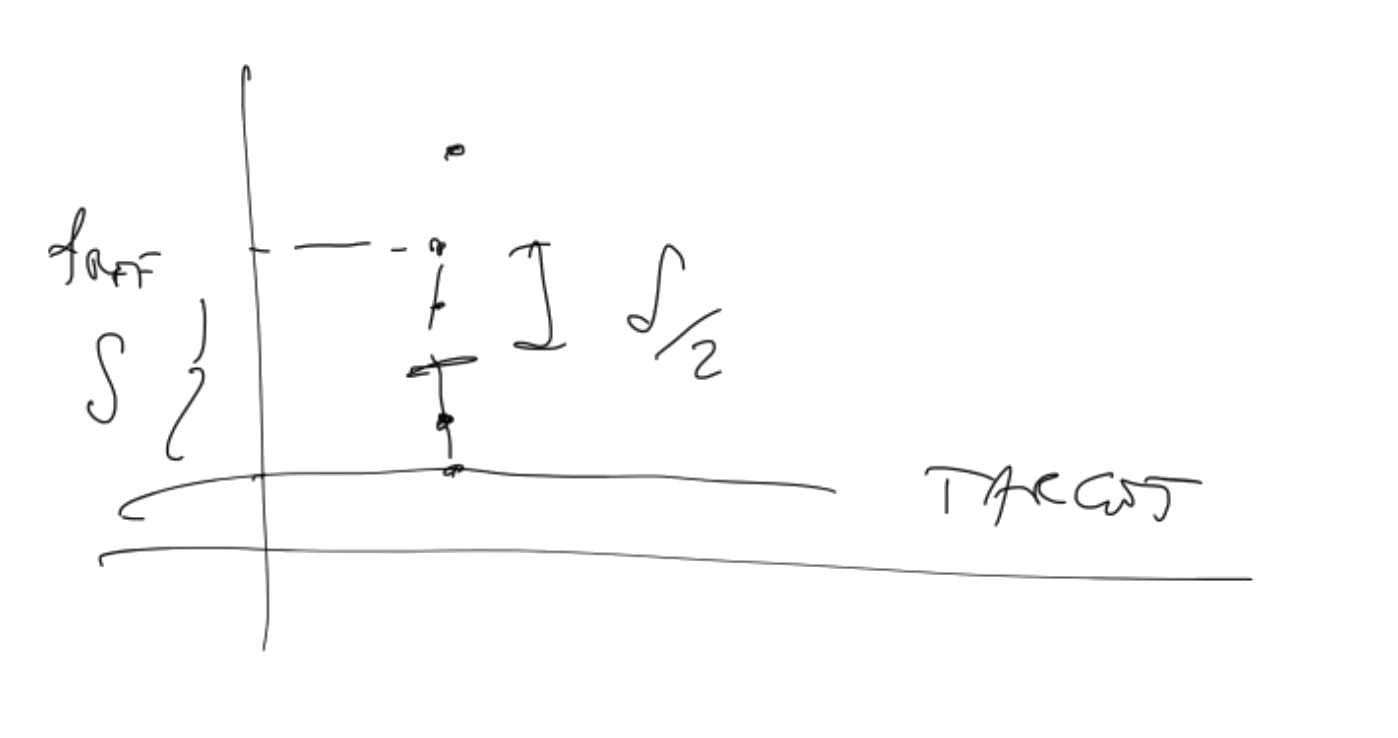 f_REF
δ
δ/2
TARGET